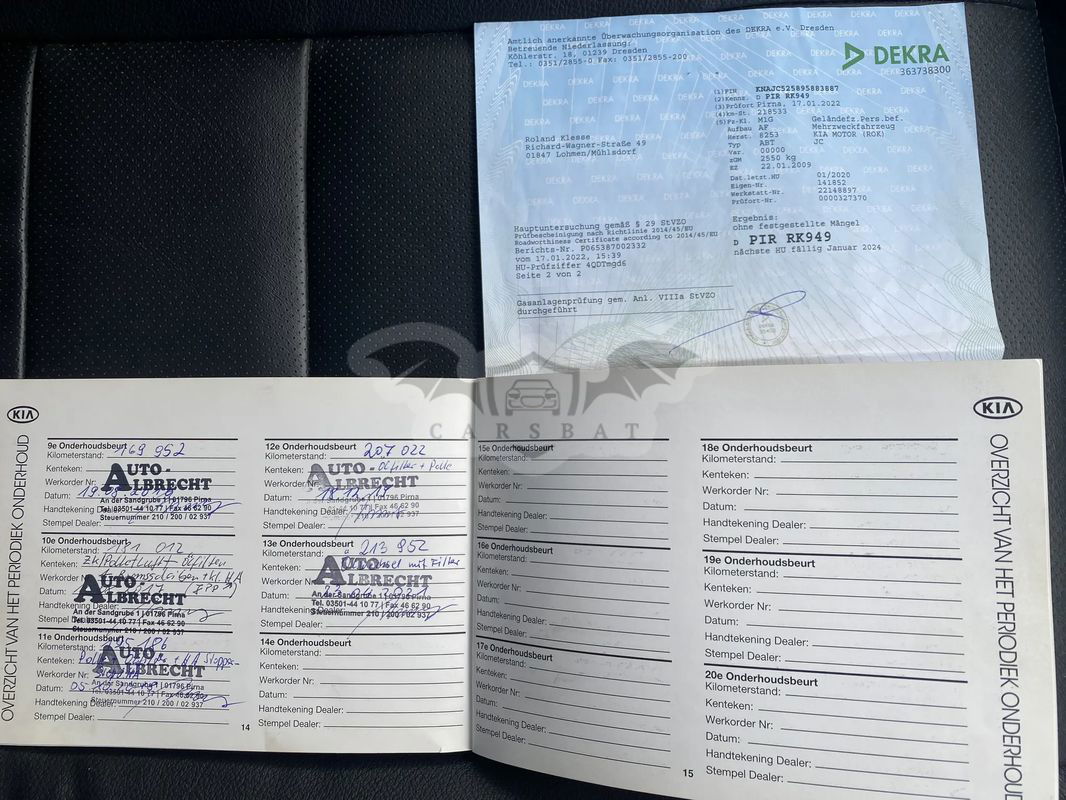 Amtlich anerkannte Überwachungsorganisation des DEKRA e.V. Dresden
Betreuende Niederlassung:
Köhlerstr. 18, 01239 Dresden
Tel.: 0351/2855-0 Fax: 0351/2855-200
DEKRA
363738300
Roland Klesse
Richard-Wagner-Straße 49
01847 Lohmen/Mühlsdorf
(1) FIN KNAJC525895883887
(2) Kennz. D PIR RK949
(3) Prüfort Pirna, 17.01.2022
(4) km-St. 218533
(5) Fz-Kl. M1G Geländefz.Pers.bef.
Aufbau AF Mehrzweckfahrzeug
Herst. 8253 KIA MOTOR (ROK)
Typ ABT JC
Var. 00000
zGM 2550 kg
EZ 22.01.2009
Dat.letzt.HU 01/2020
Eigen-Nr. 141852
Werkstatt-Nr. 22148897
Prüfort-Nr. 0000327370
Hauptuntersuchung gemäß § 29 StVZO
Prüfbescheinigung nach Richtlinie 2014/45/EU
Roadworthiness Certificate according to 2014/45/EU
Berichts-Nr. P065387002332
vom 17.01.2022, 15:39
HU-Prüfziffer 4QDTmgd6
Seite 2 von 2
Ergebnis:
ohne festgestellte Mängel
D PIR RK949
nächste HU fällig Januar 2024
Gasanlagenprüfung gem. Anl. VIIIa StVZO
durchgeführt
CARSBAT
KIA
OVERZICHT VAN HET PERIODIEK ONDERHOUD
9e Onderhoudsbeurt
Kilometerstand: 169 952
Kenteken:
Werkorder Nr:
Datum:
Handtekening Dealer:
Stempel Dealer:
AUTO-ALBRECHT
An der Sandgrube 1 | 01796 Pirna
Tel. 03501-44 10 77 | Fax 46 62 90
Steuernummer 210 / 200 / 02 937
10e Onderhoudsbeurt
Kilometerstand: 181 012
Kenteken:
Werkorder Nr:
Datum:
Handtekening Dealer:
Stempel Dealer:
AUTO-ALBRECHT
An der Sandgrube 1 | 01796 Pirna
Tel. 03501-44 10 77 | Fax 46 62 90
Steuernummer 210 / 200 / 02 937
11e Onderhoudsbeurt
Kilometerstand:
Kenteken:
Werkorder Nr:
Datum:
Handtekening Dealer:
Stempel Dealer:
AUTO-ALBRECHT
An der Sandgrube 1 | 01796 Pirna
Tel. 03501-44 10 77 | Fax 46 62 90
Steuernummer 210 / 200 / 02 937
12e Onderhoudsbeurt
Kilometerstand: 207 022
Kenteken: Ölfilter + Polle
Werkorder Nr:
Datum:
Handtekening Dealer:
Stempel Dealer:
AUTO-ALBRECHT
13e Onderhoudsbeurt
Kilometerstand: 213 952
Kenteken: mit Filter
Werkorder Nr:
Datum:
Handtekening Dealer:
Stempel Dealer:
AUTO-ALBRECHT
An der Sandgrube 1 | 01796 Pirna
Tel. 03501-44 10 77 | Fax 46 62 90
Steuernummer 210 / 200 / 02 937
14e Onderhoudsbeurt
Kilometerstand:
Kenteken:
Werkorder Nr:
Datum:
Handtekening Dealer:
Stempel Dealer:
14
15e Onderhoudsbeurt
Kilometerstand:
Kenteken:
Werkorder Nr:
Datum:
Handtekening Dealer:
Stempel Dealer:
16e Onderhoudsbeurt
Kilometerstand:
Kenteken:
Werkorder Nr:
Datum:
Handtekening Dealer:
Stempel Dealer:
17e Onderhoudsbeurt
Kilometerstand:
Kenteken:
Werkorder Nr:
Datum:
Handtekening Dealer:
Stempel Dealer:
18e Onderhoudsbeurt
Kilometerstand:
Kenteken:
Werkorder Nr:
Datum:
Handtekening Dealer:
Stempel Dealer:
19e Onderhoudsbeurt
Kilometerstand:
Kenteken:
Werkorder Nr:
Datum:
Handtekening Dealer:
Stempel Dealer:
20e Onderhoudsbeurt
Kilometerstand:
Kenteken:
Werkorder Nr:
Datum:
Handtekening Dealer:
Stempel Dealer:
15
KIA
OVERZICHT VAN HET PERIODIEK ONDERHOUD